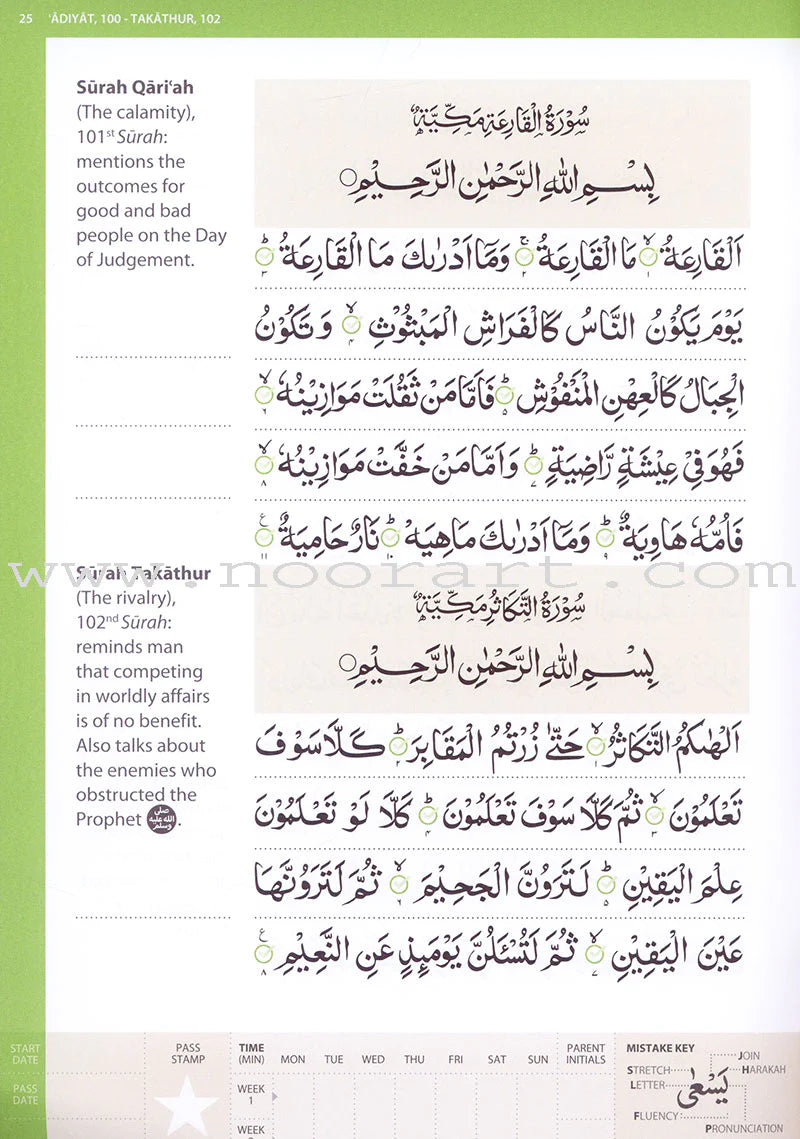 25 ʿĀDIYĀT, 100 - TAKĀTHUR, 102
Sūrah Qāriʿah
(The calamity),
101st Sūrah:
mentions the
outcomes for
good and bad
people on the Day
of Judgement.
سُوْرَةُ الْقَارِعَةِ مَكِّيَّةٌ
بِسْمِ اللّٰهِ الرَّحْمٰنِ الرَّحِيْمِ
اَلْقَارِعَةُ ۙ۱ مَا الْقَارِعَةُ ۚ۲ وَمَاۤ اَدْرٰىكَ مَا الْقَارِعَةُ ؕ۳
يَوْمَ يَكُوْنُ النَّاسُ كَالْفَرَاشِ الْمَبْثُوْثِ ۙ۴ وَ تَكُوْنُ
الْجِبَالُ كَالْعِهْنِ الْمَنْفُوْشِ ؕ۵ فَاَمَّا مَنْ ثَقُلَتْ مَوَازِيْنُهٗ ۙ۶
فَهُوَ فِيْ عِيْشَةٍ رَّاضِيَةٍ ؕ۷ وَاَمَّا مَنْ خَفَّتْ مَوَازِيْنُهٗ ۙ۸
فَاُمُّهٗ هَاوِيَةٌ ؕ۹ وَمَاۤ اَدْرٰىكَ مَاهِيَهْ ؕ۱۰ نَارٌ حَامِيَةٌ ۱۱
www.noorart.com
Sūrah Takāthur
(The rivalry),
102nd Sūrah:
reminds man
that competing
in worldly affairs
is of no benefit.
Also talks about
the enemies who
obstructed the
Prophet ﷺ.
سُوْرَةُ التَّكَاثُرِ مَكِّيَّةٌ
بِسْمِ اللّٰهِ الرَّحْمٰنِ الرَّحِيْمِ
اَلْهٰىكُمُ التَّكَاثُرُ ۙ۱ حَتّٰى زُرْتُمُ الْمَقَابِرَ ؕ۲ كَلَّا سَوْفَ
تَعْلَمُوْنَ ۙ۳ ثُمَّ كَلَّا سَوْفَ تَعْلَمُوْنَ ؕ۴ كَلَّا لَوْ تَعْلَمُوْنَ
عِلْمَ الْيَقِيْنِ ؕ۵ لَتَرَوُنَّ الْجَحِيْمَ ۙ۶ ثُمَّ لَتَرَوُنَّهَا
عَيْنَ الْيَقِيْنِ ۙ۷ ثُمَّ لَتُسْـَٔلُنَّ يَوْمَئِذٍ عَنِ النَّعِيْمِ ۸
START DATE
PASS DATE
PASS STAMP
TIME (MIN) MON TUE WED THU FRI SAT SUN PARENT INITIALS
WEEK 1
WEEK
MISTAKE KEY
JOIN
STRETCH HARAKAH
LETTER يَسْعٰى
FLUENCY
PRONUNCIATION